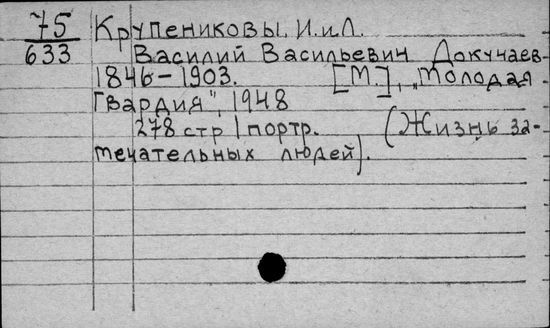 75 Крупениковы, И. и Л.
633 Василий Васильевич Докучаев
1846–1903. [М.], „Молодая
Гвардия", 1948
278 стр 1 портр. (Жизнь за-
мечательных людей).